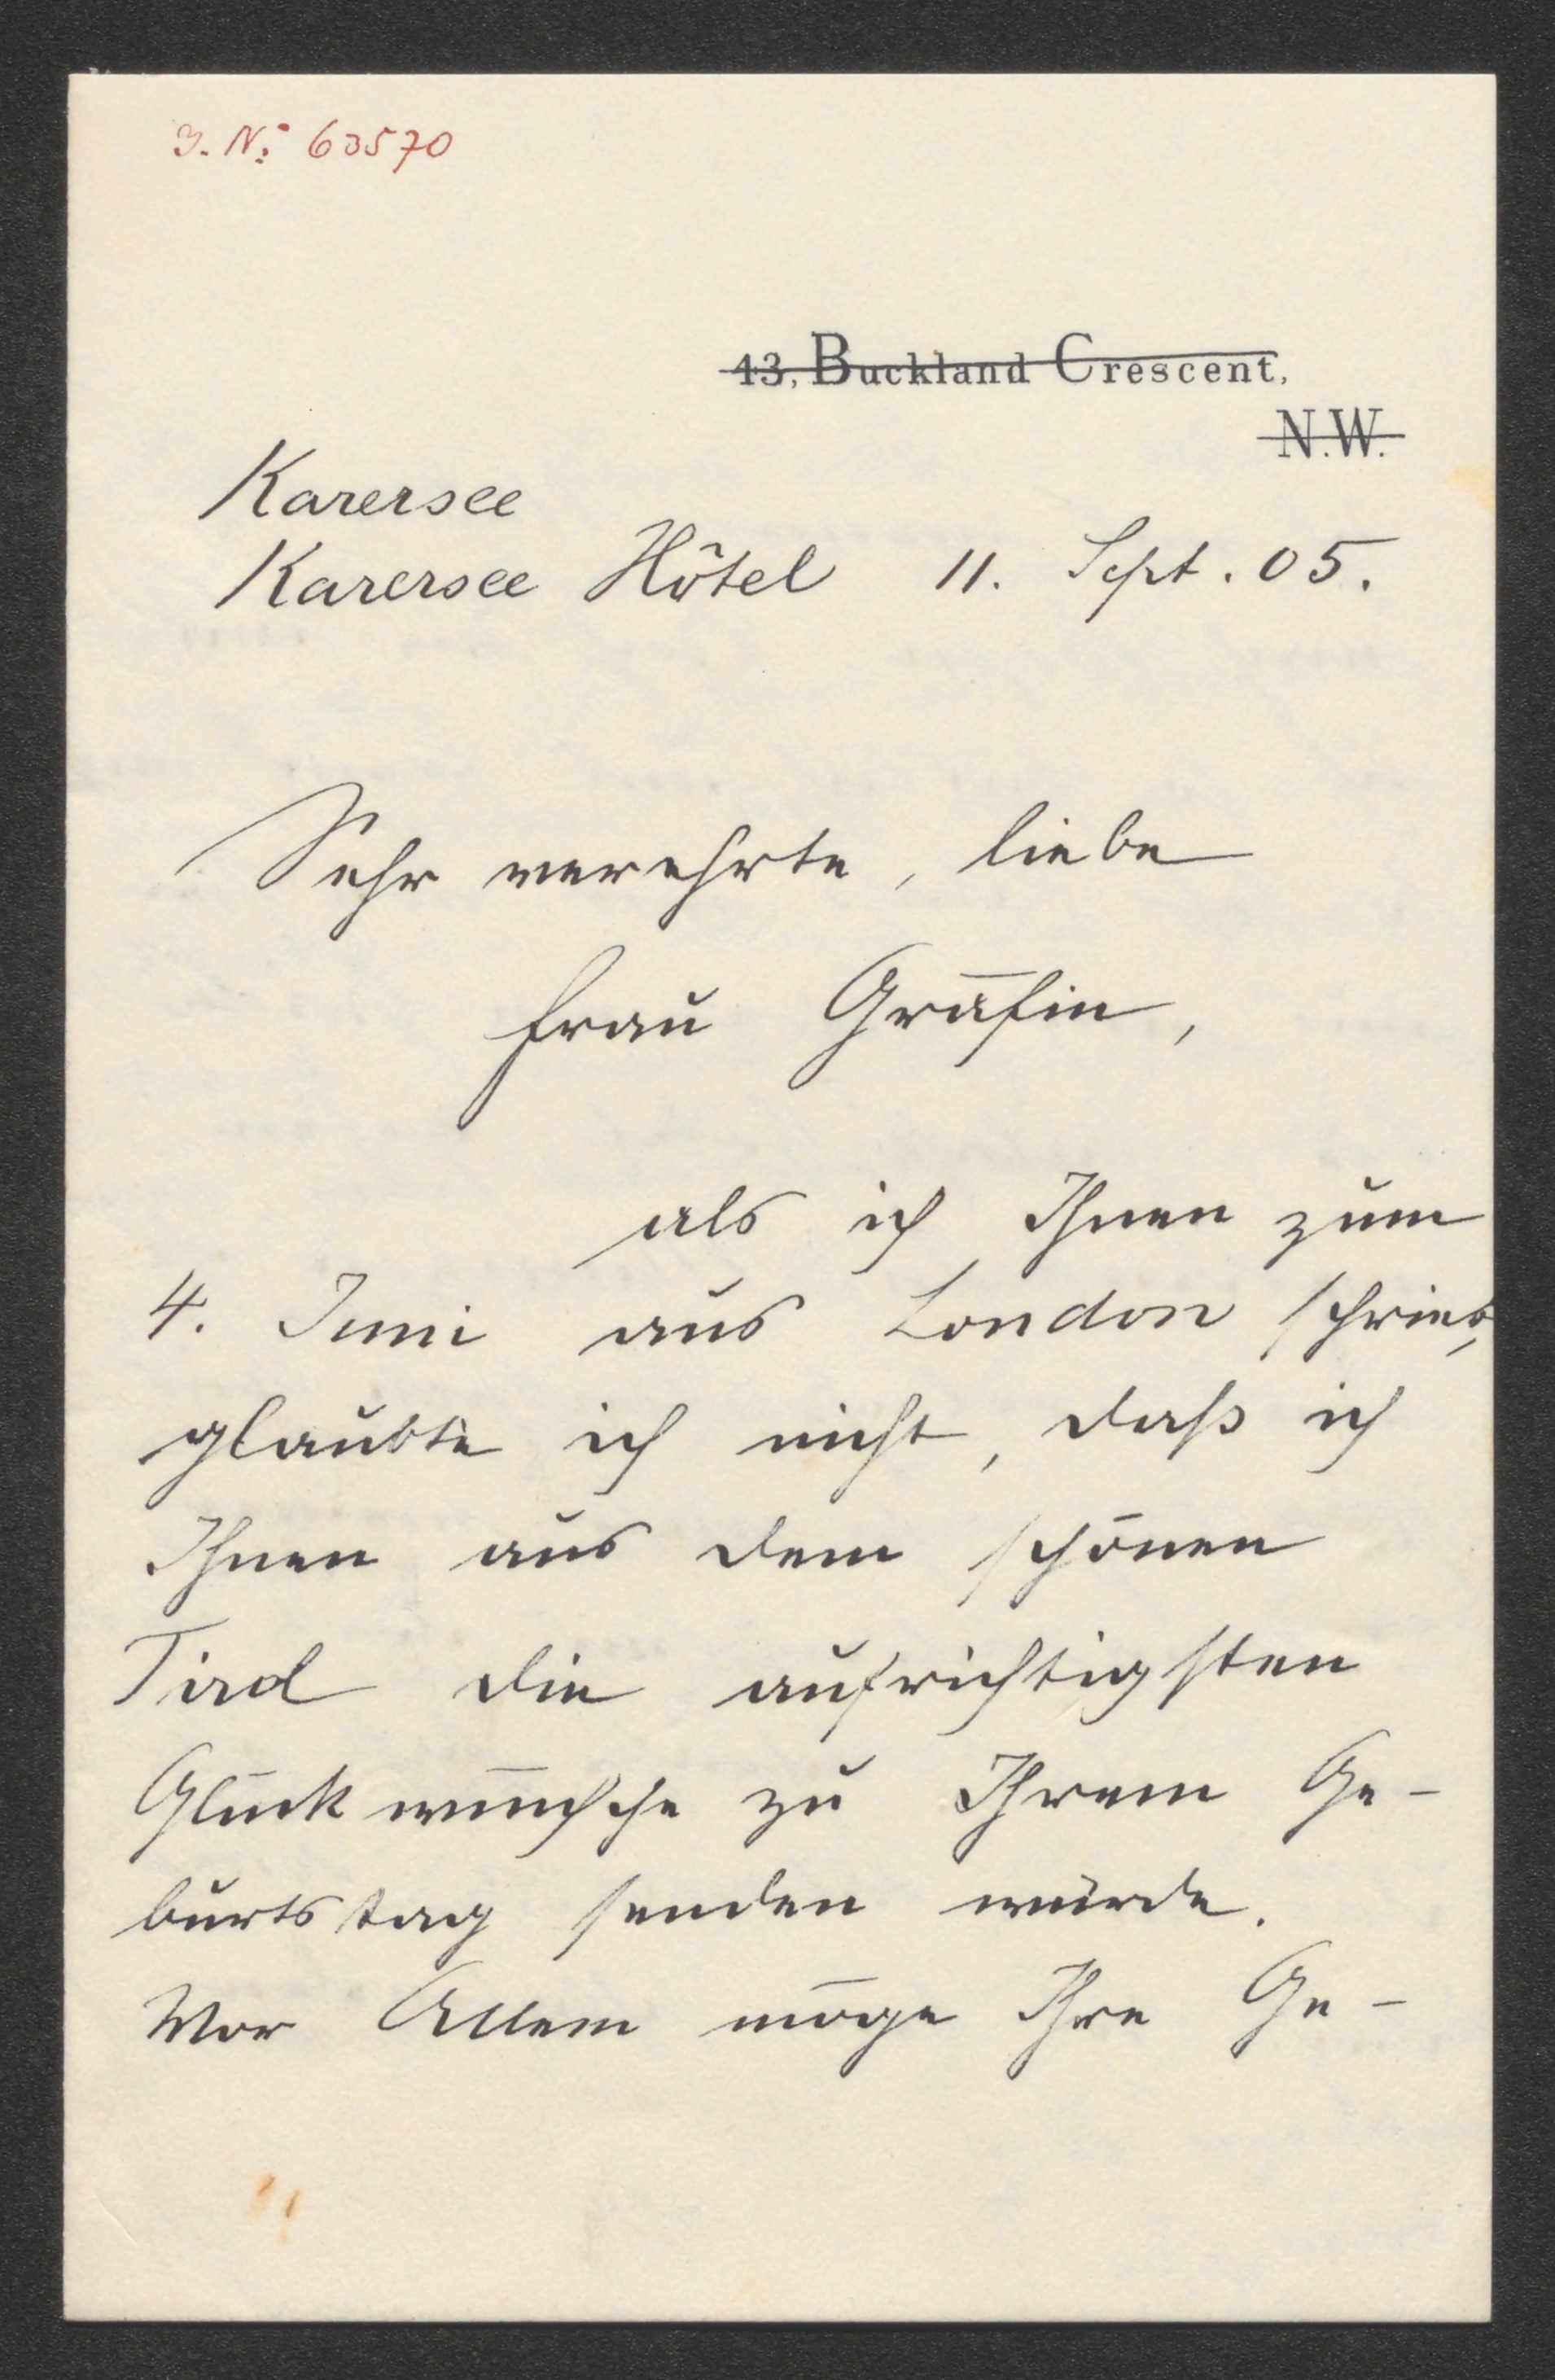 J. Nº 63570
43, Buckland Crescent,
N.W.
Karersee
Karersee Hôtel 11. Sept. 05.
Sehr verehrte, liebe
Frau Gräfin,
als ich Ihnen zum
4. Juni aus London schrieb,
glaubte ich nicht, daß ich
Ihnen aus dem schönen
Tirol die aufrichtigsten
Glückwünsche zu Ihrem Ge-
burtstag senden würde.
Vor Allem möge Ihre Ge-